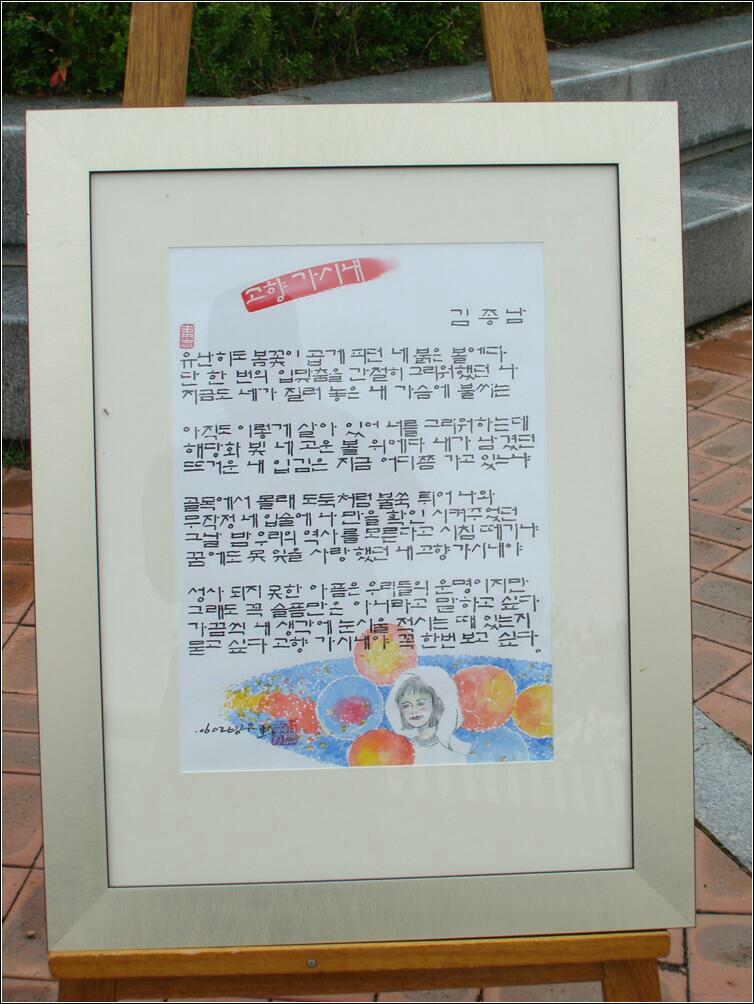 고향 가시내
김종남
유난히도 봄꽃이 곱게 피던 네 붉은 볼에다
단 한 번의 입맞춤을 간절히 그리워했던 나
지금도 네가 질러 놓은 내 가슴에 불씨는
아직도 이렇게 살아 있어 너를 그리워하는데
해당화 빛 네 고운 볼 위에다 내가 남겼던
뜨거운 내 입김은 지금 어디쯤 가고 있는냐
골목에서 몰래 도둑처럼 불쑥 튀어 나와
무작정 네 입술에 나 만을 확인 시켜주었던
그날 밤 우리의 역사를 모른다고 시침 떼기냐
꿈에도 못 잊을 사랑했던 내고향가시내야
성사 되지 못한 아픔은 우리들의 운명이지만
그래도 꼭 슬픔만은 아니라고 말하고 싶다
가끔씩 내 생각에 눈시울 적시는 때 있는지
묻고 싶다 고향 가시내야 꼭 한번 보고 싶다.